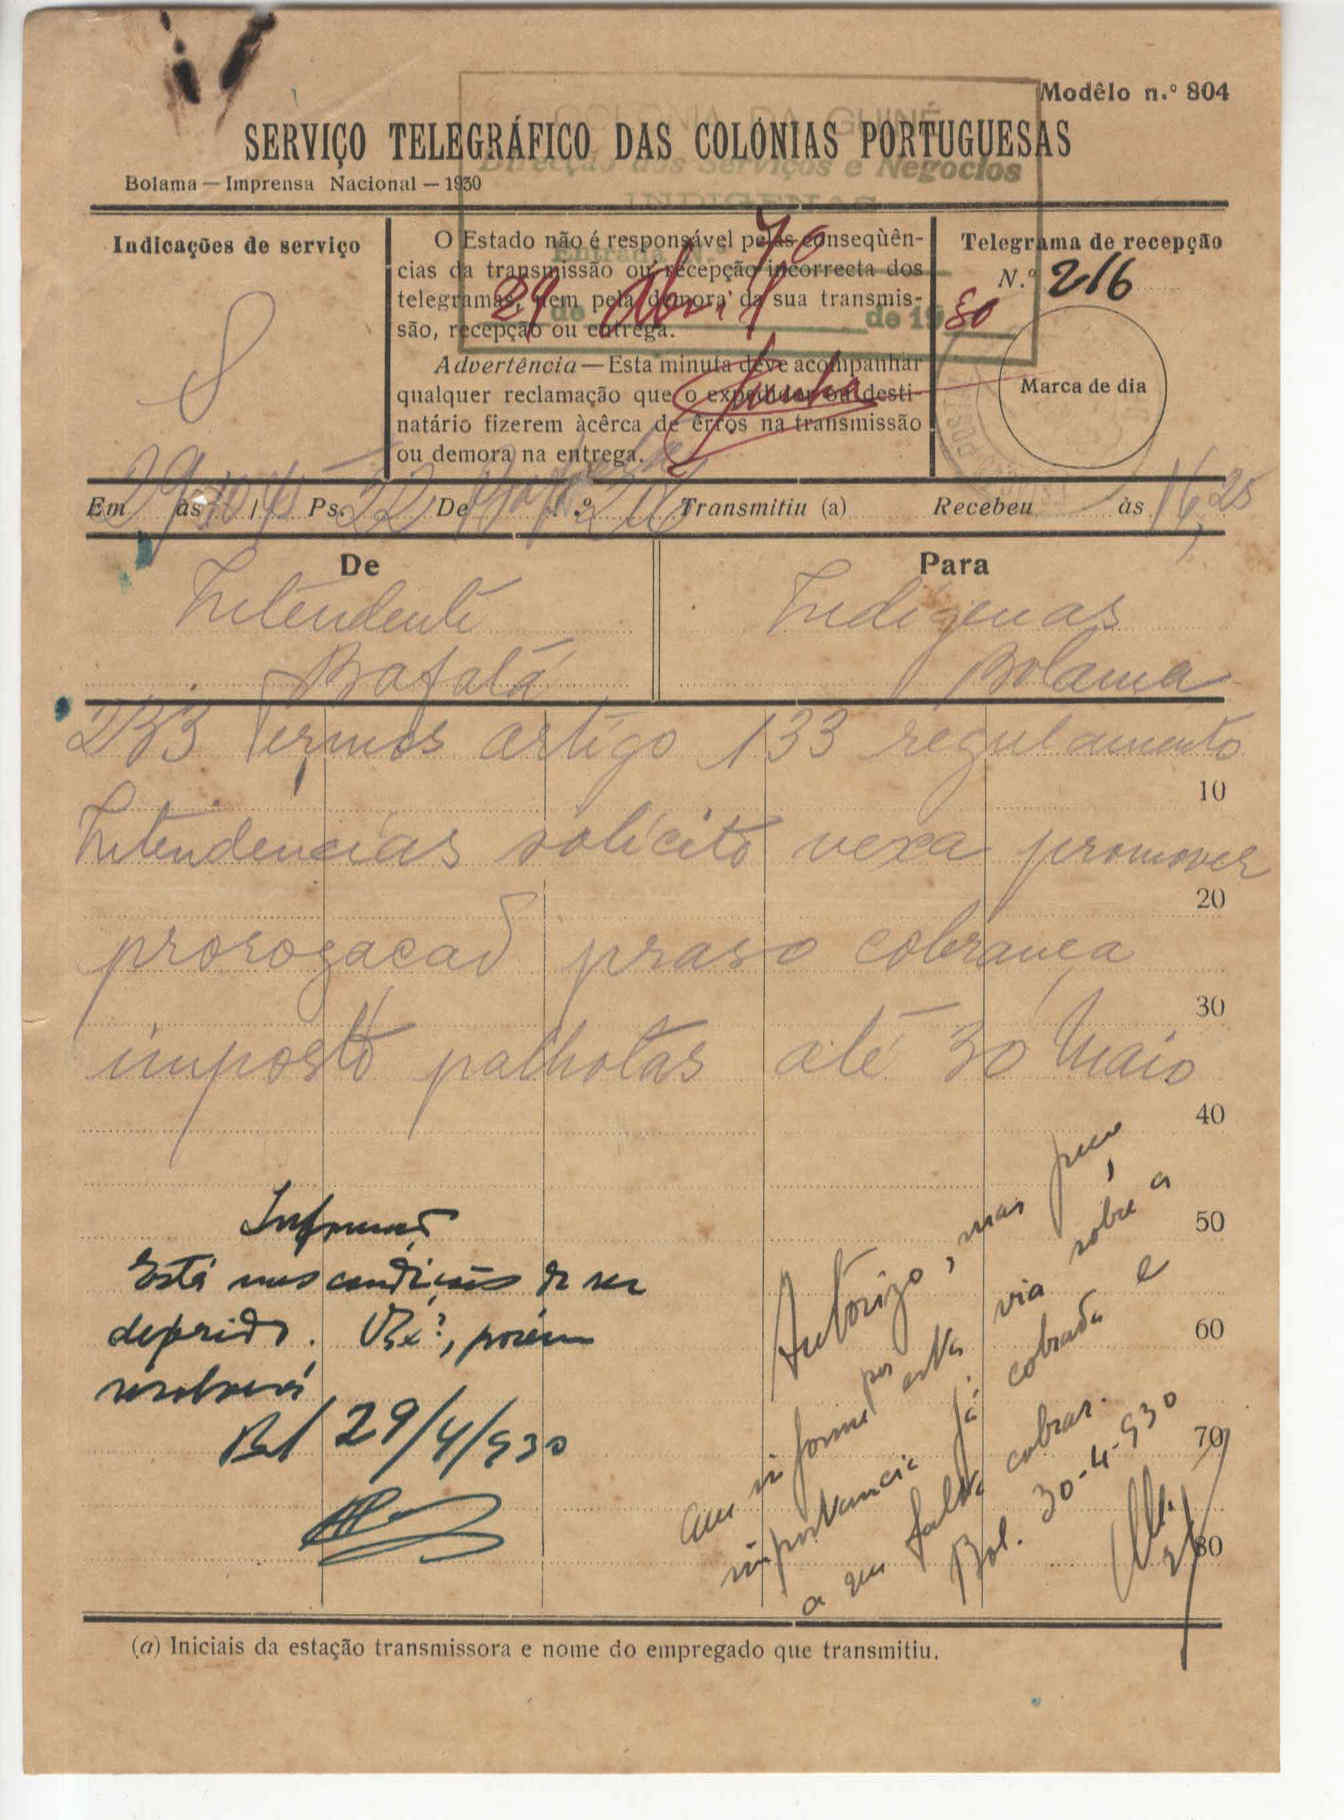 Modêlo n.º 804
COLONIA DA GUINÉ
SERVIÇO TELEGRÁFICO DAS COLÓNIAS PORTUGUESAS
Direcção dos Serviços e Negocios
INDIGENAS
Bolama — Imprensa Nacional — 1930
Indicações de serviço
8
O Estado não é responsável pelas conseqüên-
cias da transmissão ou recepção incorrecta dos
telegramas, nem pela demora da sua transmis-
são, recepção ou entrega.
Advertência — Esta minuta deve acompanhar
qualquer reclamação que o expedidor ou desti-
natário fizerem àcêrca de êrros na transmissão
ou demora na entrega.
Entrada N.º 70
29 de Abril de 1930
Cunha
Telegrama de recepção
N.º 216
Marca de dia
Em 29 às Ps. 22 De Bafatá N.º 216 Transmitiu (a) Recebeu às 16,25
De
Intendente
Bafatá
Para
Indigenas
Bolama
233 Termos artigo 133 regulamento
10
Intendencias solicito vexa promover
20
prorogacão praso cobranca
30
imposto palhotas até 30 Maio
40
50
60
70
80
Informação
Está nas condições de ser
deferido. V. Ex.ª, porém
resolverá
Bol 29/4/930
Autorizo, mas para
que informe por esta via sobre a
importancia já cobrada e
a que falta cobrar.
Bol. 30-4-930
(a) Iniciais da estação transmissora e nome do empregado que transmitiu.